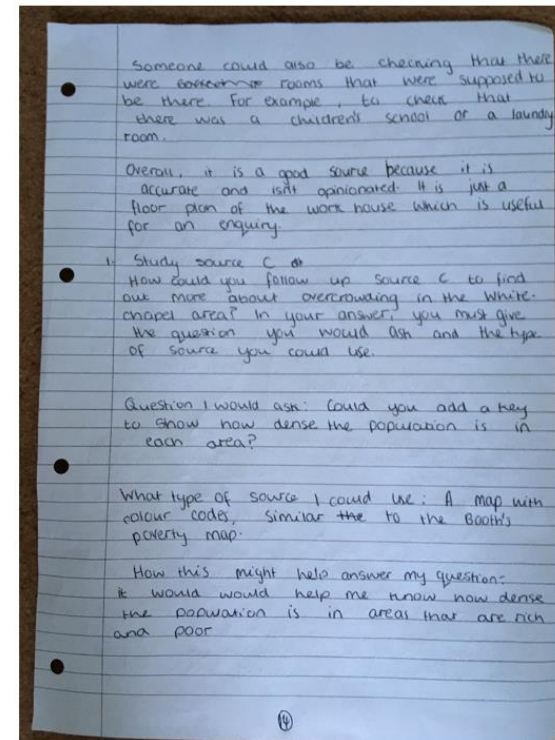 Someone could also be checking that there
were rooms that were supposed to
be there. For example, to check that
there was a children's school or a laundry
room.
Overall, it is a good source because it is
accurate and isn't opinionated. It is just a
floor plan of the work house which is useful
for an enquiry.
1. Study source C
How could you follow up source C to find
out more about overcrowding in the White-
chapel area? In your answer, you must give
the question you would ask and the type
of source you could use.
Question I would ask: Could you add a key
to show how dense the population is in
each area?
What type of source I could use: A map with
colour codes, similar the to the Booth's
poverty map.
How this might help answer my question:
it would would help me know how dense
the population is in areas that are rich
and poor
14